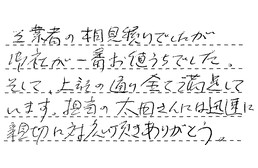 三業者の相見積りでしたが
御社が一番お値うちでした。
そして、上記の通り全て満足して
います。担当の太田さんには迅速に
親切に対応頂きありがとう。